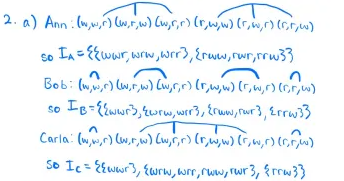 2. a) Ann: (w,w,r) (w,r,w) (w,r,r) (r,w,w) (r,w,r) (r,r,w)
so I_A = {{wwr, wrw, wrr}, {rww, rwr, rrw}}
Bob: (w,w,r) (w,r,w) (w,r,r) (r,w,w) (r,w,r) (r,r,w)
so I_B = {{wwr}, {wrw, wrr}, {rww, rwr}, {rrw}}
Carla: (w,w,r) (w,r,w) (w,r,r) (r,w,w) (r,w,r) (r,r,w)
so I_C = {{wwr}, {wrw, wrr, rww, rwr}, {rrw}}